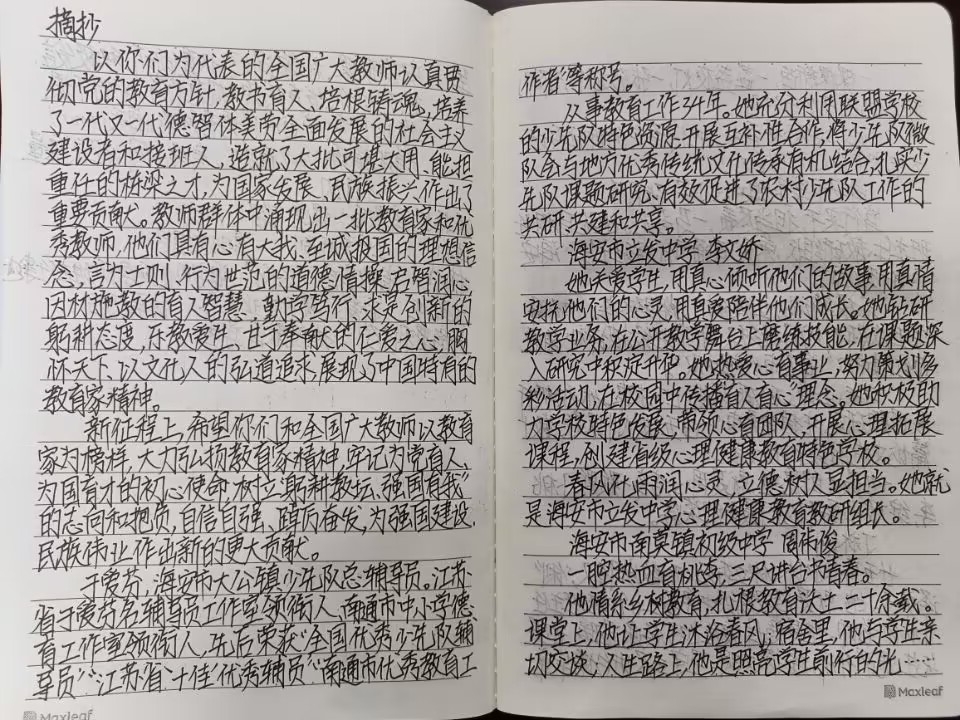 摘抄
以你们为代表的全国广大教师认真贯
彻党的教育方针,教书育人、培根铸魂,培养
了一代又一代德智体美劳全面发展的社会主义
建设者和接班人,造就了大批可堪大用、能担
重任的栋梁之才,为国家发展、民族振兴作出了
重要贡献。教师群体中涌现出一批教育家和优
秀教师,他们具有心有大我、至诚报国的理想信
念,言为士则、行为世范的道德情操,启智润心、
因材施教的育人智慧,勤学笃行、求是创新的
躬耕态度,乐教爱生、甘于奉献的仁爱之心,胸
怀天下、以文化人的弘道追求,展现了中国特有的
教育家精神。
新征程上,希望你们和全国广大教师以教育
家为榜样,大力弘扬教育家精神,牢记为党育人、
为国育才的初心使命,树立“躬耕教坛、强国有我”
的志向和抱负,自信自强、踔厉奋发,为强国建设、
民族伟业作出新的更大贡献。
于爱芬,海安市大公镇少先队总辅导员。江苏
省于爱芬名辅导员工作室领衔人、南通市中小学德
育工作室领衔人,先后荣获“全国优秀少先队辅
导员”“江苏省十佳优秀辅员”“南通市优秀教育工
Maxleaf
作者”等称号。
从事教育工作34年。她充分利用联盟学校
的少先队特色资源,开展互补性合作,将少先队微
队会与地方优秀传统文化传承有机结合,扎实少
先队课题研究,有效促进了农村少先队工作的
共研共建和共享。
海安市立发中学 李文娇
她关爱学生,用真心倾听他们的故事,用真情
安抚他们的心灵,用真爱陪伴他们成长。她钻研
教学业务,在公开教学舞台上磨练技能,在课题深
入研究中积淀升华。她热爱心育事业,努力策划多
彩活动,在校园中传播“育人育心”理念。她积极助
力学校特色发展,带领心育团队,开展心理拓展
课程,创建省级心理健康教育特色学校。
春风化雨润心灵,立德树人显担当。她就
是海安市立发中学心理健康教育教研组长。
海安市南莫镇初级中学 周伟俊
一腔热血育桃李,三尺讲台书青春。
他情系乡村教育,扎根教育沃土二十余载。
课堂上,他让学生沐浴春风,宿舍里,他与学生亲
切交谈,人生路上,他是照亮学生前行的光……
Maxleaf